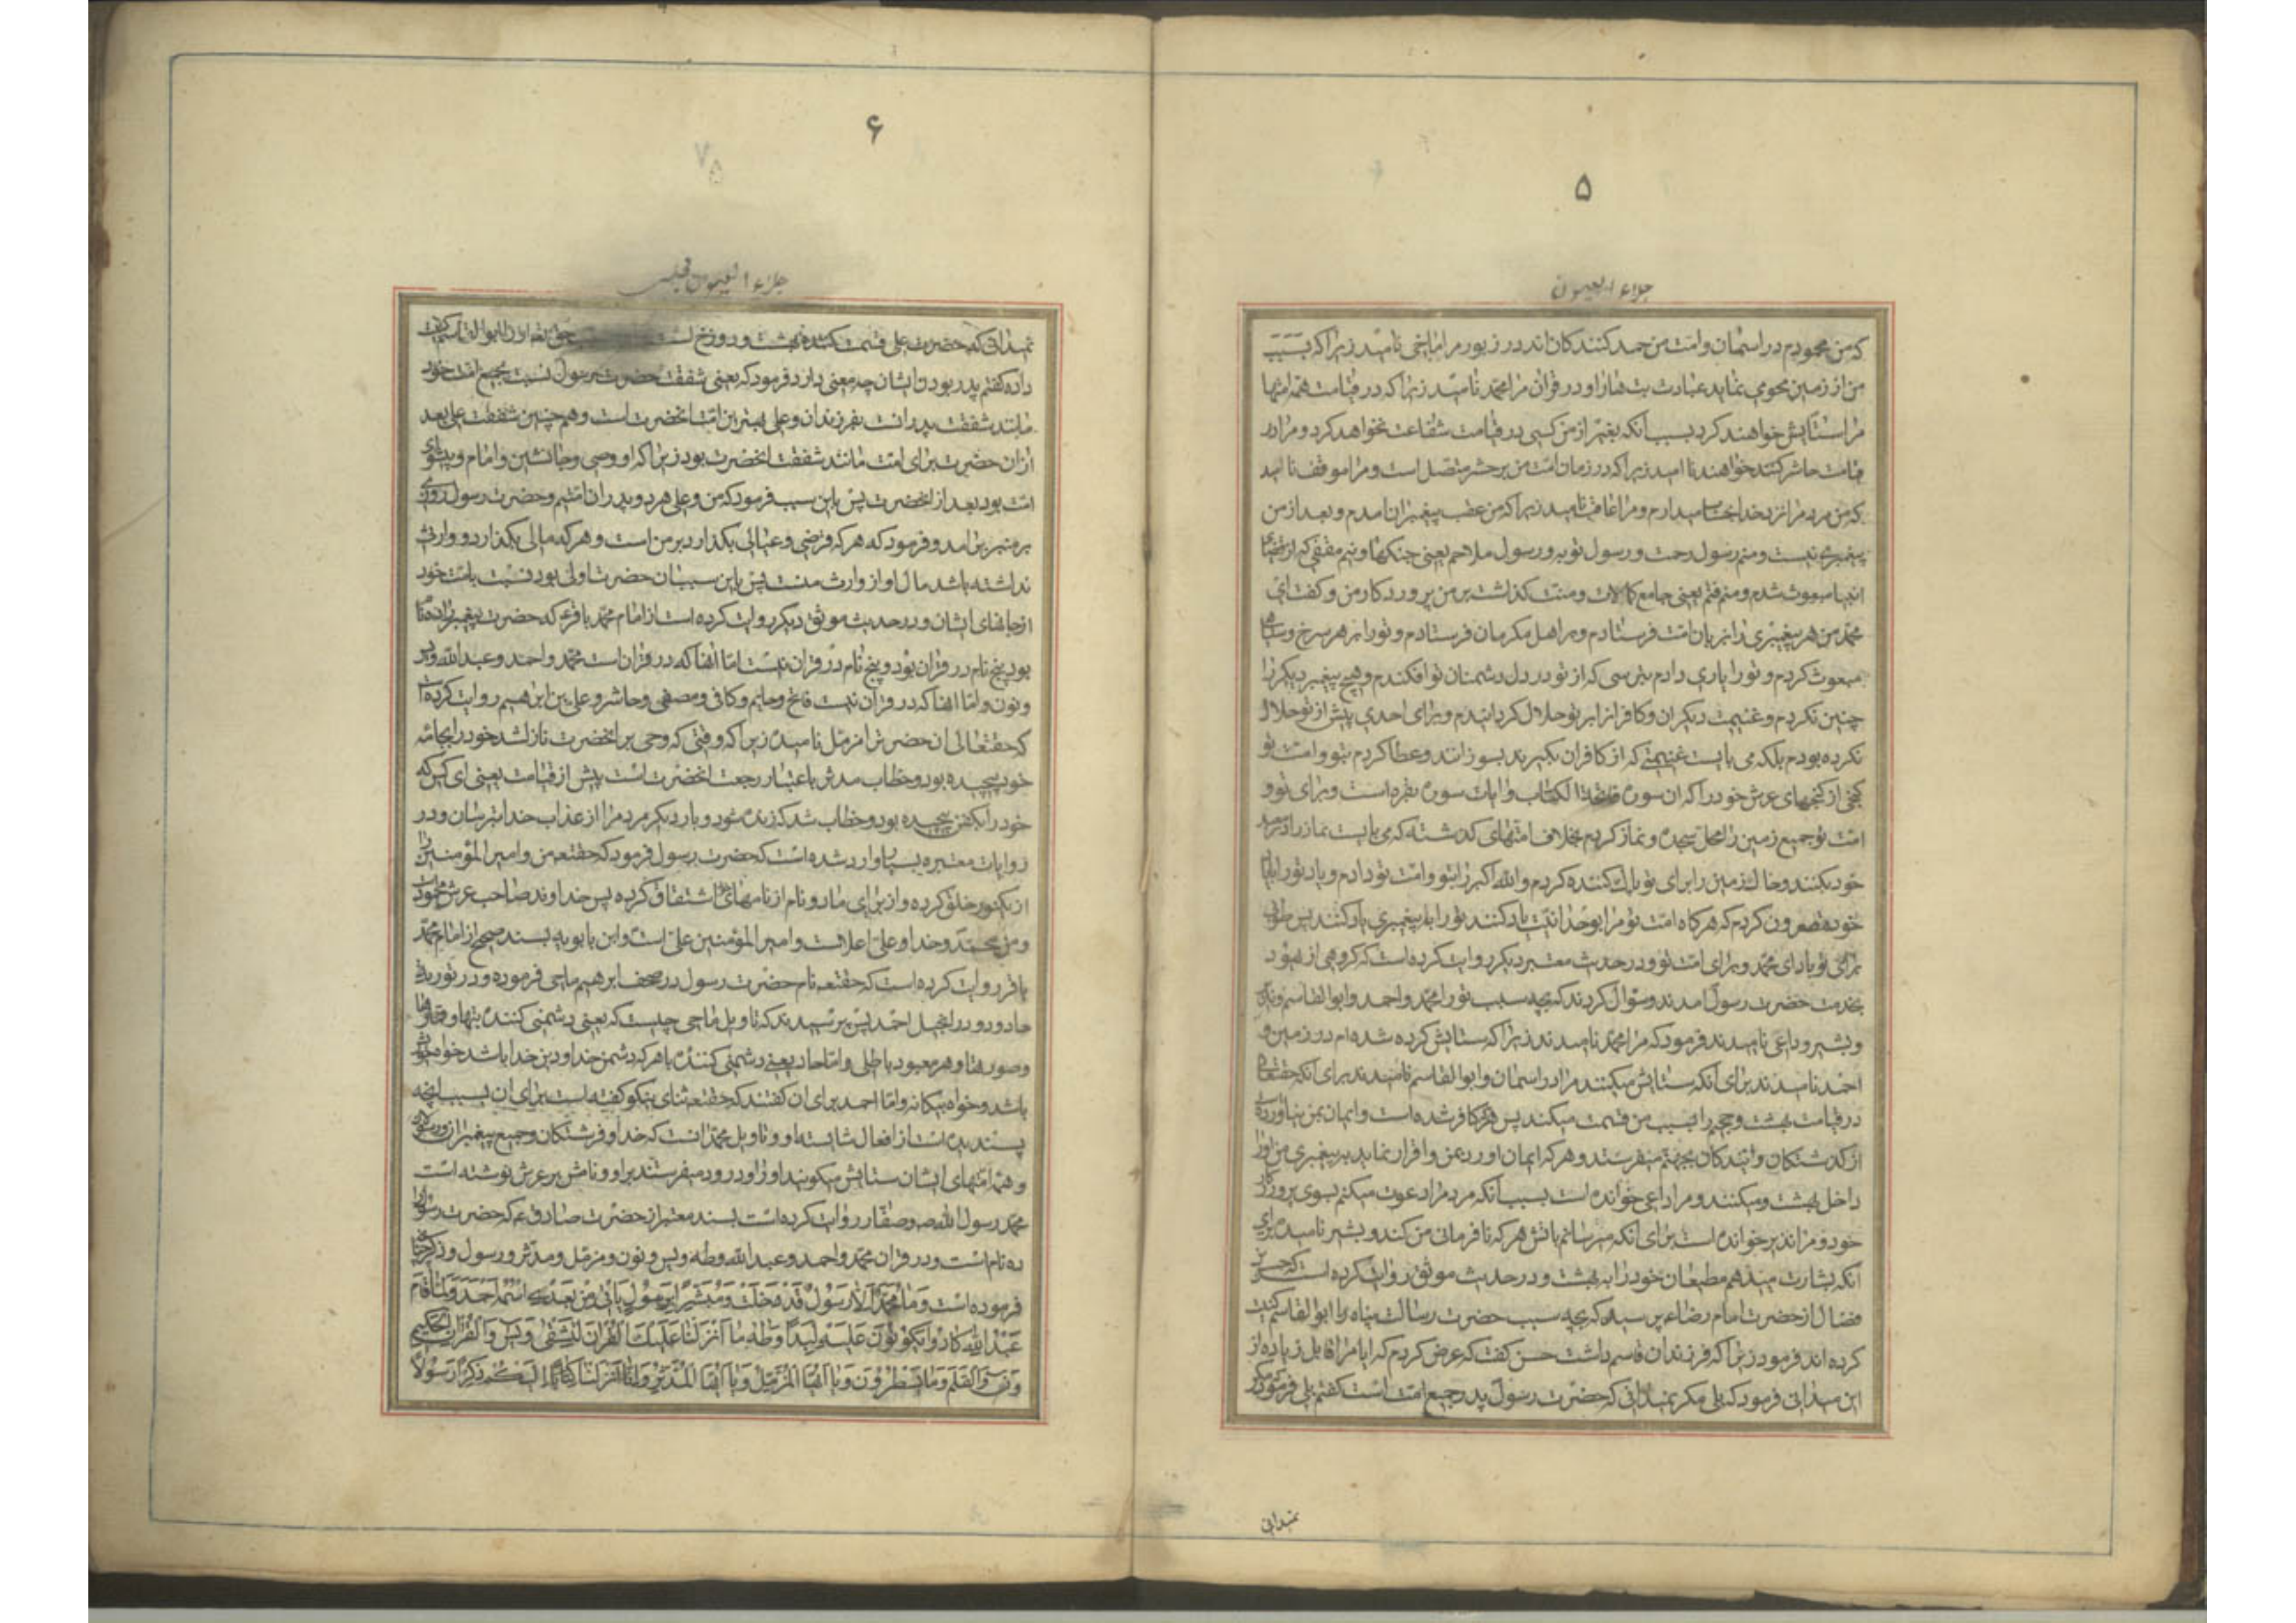 ۵
جلاء العیون
که من محمودم در اسمان و امت من حمد کنندکان اند در زبور مرا ماحی نامید زیرا که بسبب
من از زمین محو می نماید عبادت بت هارا و در قران مرا محمد نامید زیرا که در قیامت همه امتها
مرا ستایش خواهند کرد بسبب انکه بغیر از من کسی در قیامت شفاعت نخواهد کرد و مرا در
قیامت حاشر کنند خواهند نامید زیرا که در زمان امت من برحشر متصل است و مرا موقف نامید
که من مردم را نزد خدا بحساب میدارم و مرا عاقب نامید زیرا که من عقب پیغمبران امدم و بعد از من
پیغمبری نیست و منم رسول رحمت و رسول توبه و رسول ملاحم یعنی جنکها و منم مقفی که از قفای
انبیا مبعوث شدم و منم قثم یعنی جامع کمالات و منت کذاشت بر من پروردکار من و کفت ای
محمد من هر پیغمبری را بزبان امت فرستادم و بر اهل یکزبان فرستادم و تورا بر هر سرخ و سیاهی
مبعوث کردم و تورا یاری دادم بترسی که از تو در دل دشمنان تو افکندم و هیچ پیغمبر دیکر را
چنین نکردم و غنیمت دیکران و کافرانرا بر تو حلال کردانیدم و برای احدی پیش از تو حلال
نکرده بودم بلکه می بایست غنیمتی که از کافران بکیرند بسوزانند و عطا کردم بتو و امت تو
کنجی از کنجهای عرش خود را که ان سوره فاتحة الکتاب و ایات سوره بقره است و برای تو و
امت تو جمیع زمین را محل سجده و نماز کردم بخلاف امتهای کذشته که می بایست نماز را در معبد
خود بکنند و خاک زمین را برای تو پاک کننده کردم و الله اکبر را بتو و امت تو دادم و یاد تورا با یاد
خود مقرون کردم که هرکاه امت تو مرا بوحدانیت یاد کنند تورا به پیغمبری یاد کنند پس طوبی
برای تو باد ای محمد و برای امت تو و در حدیث معتبر دیکر روایت کرده است که کروهی از یهود
بخدمت حضرت رسول امدند و سؤال کردند که بچه سبب تورا محمد و احمد و ابوالقاسم و نذیر
و بشیر و داعی نامیدند فرمود که مرا محمد نامیدند زیرا که ستایش کرده شده ام در زمین و
احمد نامیدند برای انکه ستایش میکنند مرا در اسمان و ابوالقاسم نامیدند برای انکه حقتعالی
در قیامت بهشت و جحیم را بسبب من قسمت میکند پس هرکه کافر شده است و ایمان بمن نیاورده
از کذشتکان و ایندکان بجهنم میفرستد و هر که ایمان اورد بمن و اقرار نماید بر پیغمبری من اورا
داخل بهشت میکنند و مرا داعی خوانده است بسبب انکه مردم را دعوت میکنم بسوی پروردکار
خود و مرا نذیر خوانده است برای انکه میترسانم باتش هر که نافرمانی من کند و بشیر نامیده برای
انکه بشارت میدهم مطیعان خود را به بهشت و در حدیث موثق روایت کرده است که حسن بن
فضال از حضرت امام رضاء پرسید که بچه سبب حضرت رسالت پناه را ابوالقاسم کنیت
کرده اند فرمود زیرا که فرزندان قاسم داشت حسن کفت که عرض کردم که ایا مرا قابل زیاده از
این میدانی فرمود که بلی مکر نمیدانی که حضرت رسول پدر جمیع امت است کفتم بلی فرمود مکر
نمیدانی
۶
جلاء العیون مجلسی
نمیدانی که حضرت علی قسمت کننده بهشت و دوزخ است حق تعالی اورا ابوالقاسم کنیت
داده کفتم پدر بودن ایشان چه معنی دارد فرمود که یعنی شفقت حضرت رسول نسبت بجمیع امت خود
مانند شفقت پدرانست بفرزندان و علی بهترین امت انحضرت است و همچنین شفقت علی بعد
از ان حضرت برای امت مانند شفقت انحضرت بود زیرا که او وصی و جانشین و امام و پیشوای
امت بود بعد از انحضرت پس باین سبب فرمود که من و علی هر دو پدران امتیم و حضرت رسول روزی
بر منبر برامد و فرمود که هر که قرضی و عیالی بکذارد بر من است و هر که مالی بکذارد و وارثی
نداشته باشد مال او از وارث منست پس باین سبب ان حضرت اولی بود نسبت بامت خود
از جانهای ایشان و در حدیث موثق دیکر روایت کرده است از امام محمد باقر ع که حضرت پیغمبر را ده نام
بود پنج نام در قران بود و پنج نام در قران نیست اما انها که در قران است محمد و احمد و عبدالله و یس
و نون و اما انها که در قران نیست فاتح و خاتم و کافی و مصفی و حاشر و علی بن ابرهیم روایت کرده است
که حقتعالی ان حضرت را مزمل نامیده زیرا که وقتی که وحی بر انحضرت نازل شد خود را بجامه
خود پیچیده بود و خطاب مدثر باعتبار رجعت انحضرت است پیش از قیامت یعنی ای کسی که
خود را بکفن پیچیده بود و خطاب شد که زنده شو و بار دیکر مردم را از عذاب خدا بترسان و در
روایات معتبره بسیار وارد شده است که حضرت رسول فرمود که حقتعه من و امیرالمؤمنین را
از یکنور خلق کرده و از برای ما دو نام از نامهای خود اشتقاق کرده پس خداوند صاحب عرش محمود است
و من محمد و خداوند علی اعلاست و امیرالمؤمنین علی است و ابن بابویه بسند صحیح از امام محمد
باقر روایت کرده است که حقتعه نام حضرت رسول در صحف ابرهیم ماحی فرموده و در توریة
حاد و در انجیل احمد پس پرسیدند که تاویل ماحی چیست که یعنی دشمنی کننده بتها و
وصورتها و هر معبود باطلی و اما حاد یعنی دشمنی کننده با هر که دشمن خدا و دین خدا باشد خواه خویش
باشد و خواه بیکانه و اما احمد برای ان کفتند که حقتعه ثنای نیکو کفته است برای ان بسبب انچه
پسندیده است از افعال شایسته او و تاویل محمد انست که خدا و فرشتکان و جمیع پیغمبران و رسولان
و همه امتهای ایشان ستایش میکویند اورا و درود میفرستند بر او و نامش بر عرش نوشته است
محمد رسول الله ص و صفار روایت کرده است بسند معتبر از حضرت صادق ع که حضرت رسول را
ده نام است و در قران محمد و احمد و عبدالله و طه و یس و نون و مزمل و مدثر و رسول و ذکر چنانچه
فرموده است وَمٰا مُحَمَّدٌ اِلّا رَسُولٌ قَدْ خَلَتْ وَمُبَشِّرًا بِرَسُولٍ یَأْتی مِنْ بَعْدی اسْمُهُ اَحْمَدُ وَلَمّٰا قٰامَ
عَبْدُ اللهِ کٰادُوا یَکُونُونَ عَلَیْهِ لِبَدًا وَطٰهٰ مٰا اَنْزَلْنٰا عَلَیْکَ الْقُرْانَ لِتَشْقیٰ وَیٰس وَالْقُرْانِ الْحَکیمِ
وَنۤ وَالْقَلَمِ وَمٰا یَسْطُرُونَ وَیٰا اَیُّهَا الْمُزَّمِّلُ وَیٰا اَیُّهَا الْمُدَّثِّرُ وَ اَنْزَلْنٰا اِلَیْکُمْ ذِکْرًا رَسُولًا